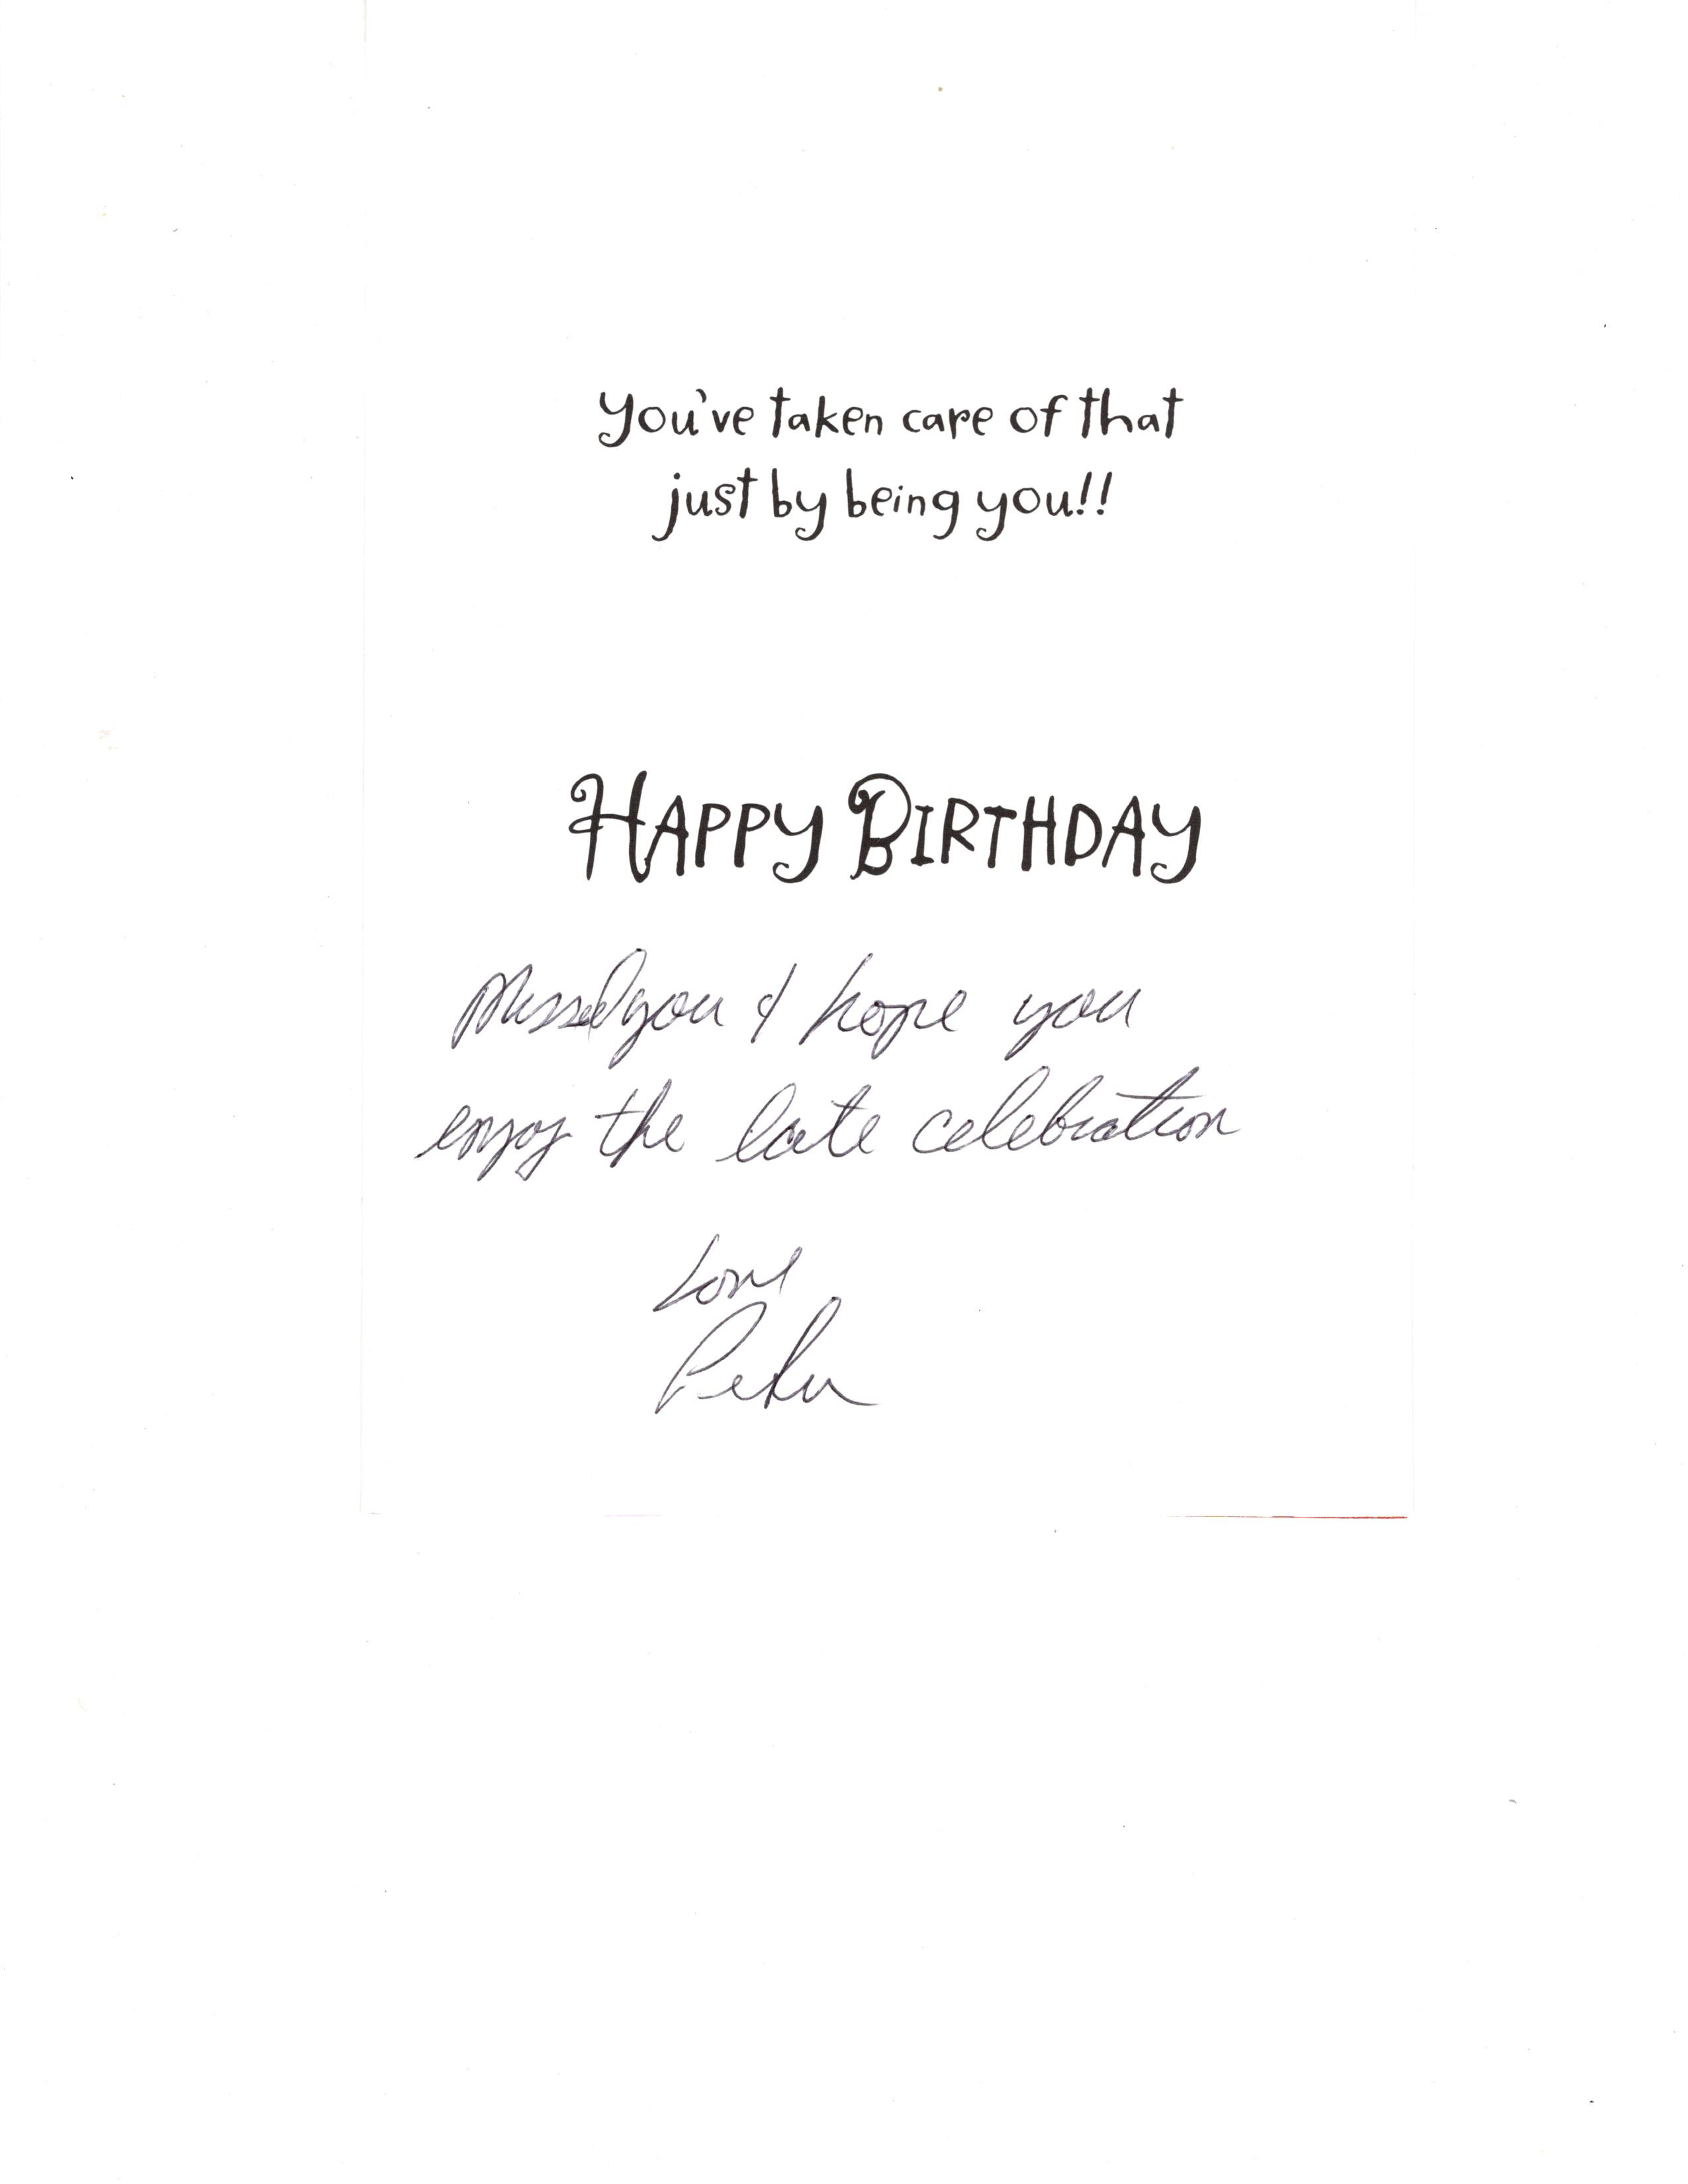 You've taken care of that
just by being you!!
HAPPY BIRTHDAY
Missed you & hope you
enjoy the late celebration
Love
Peter